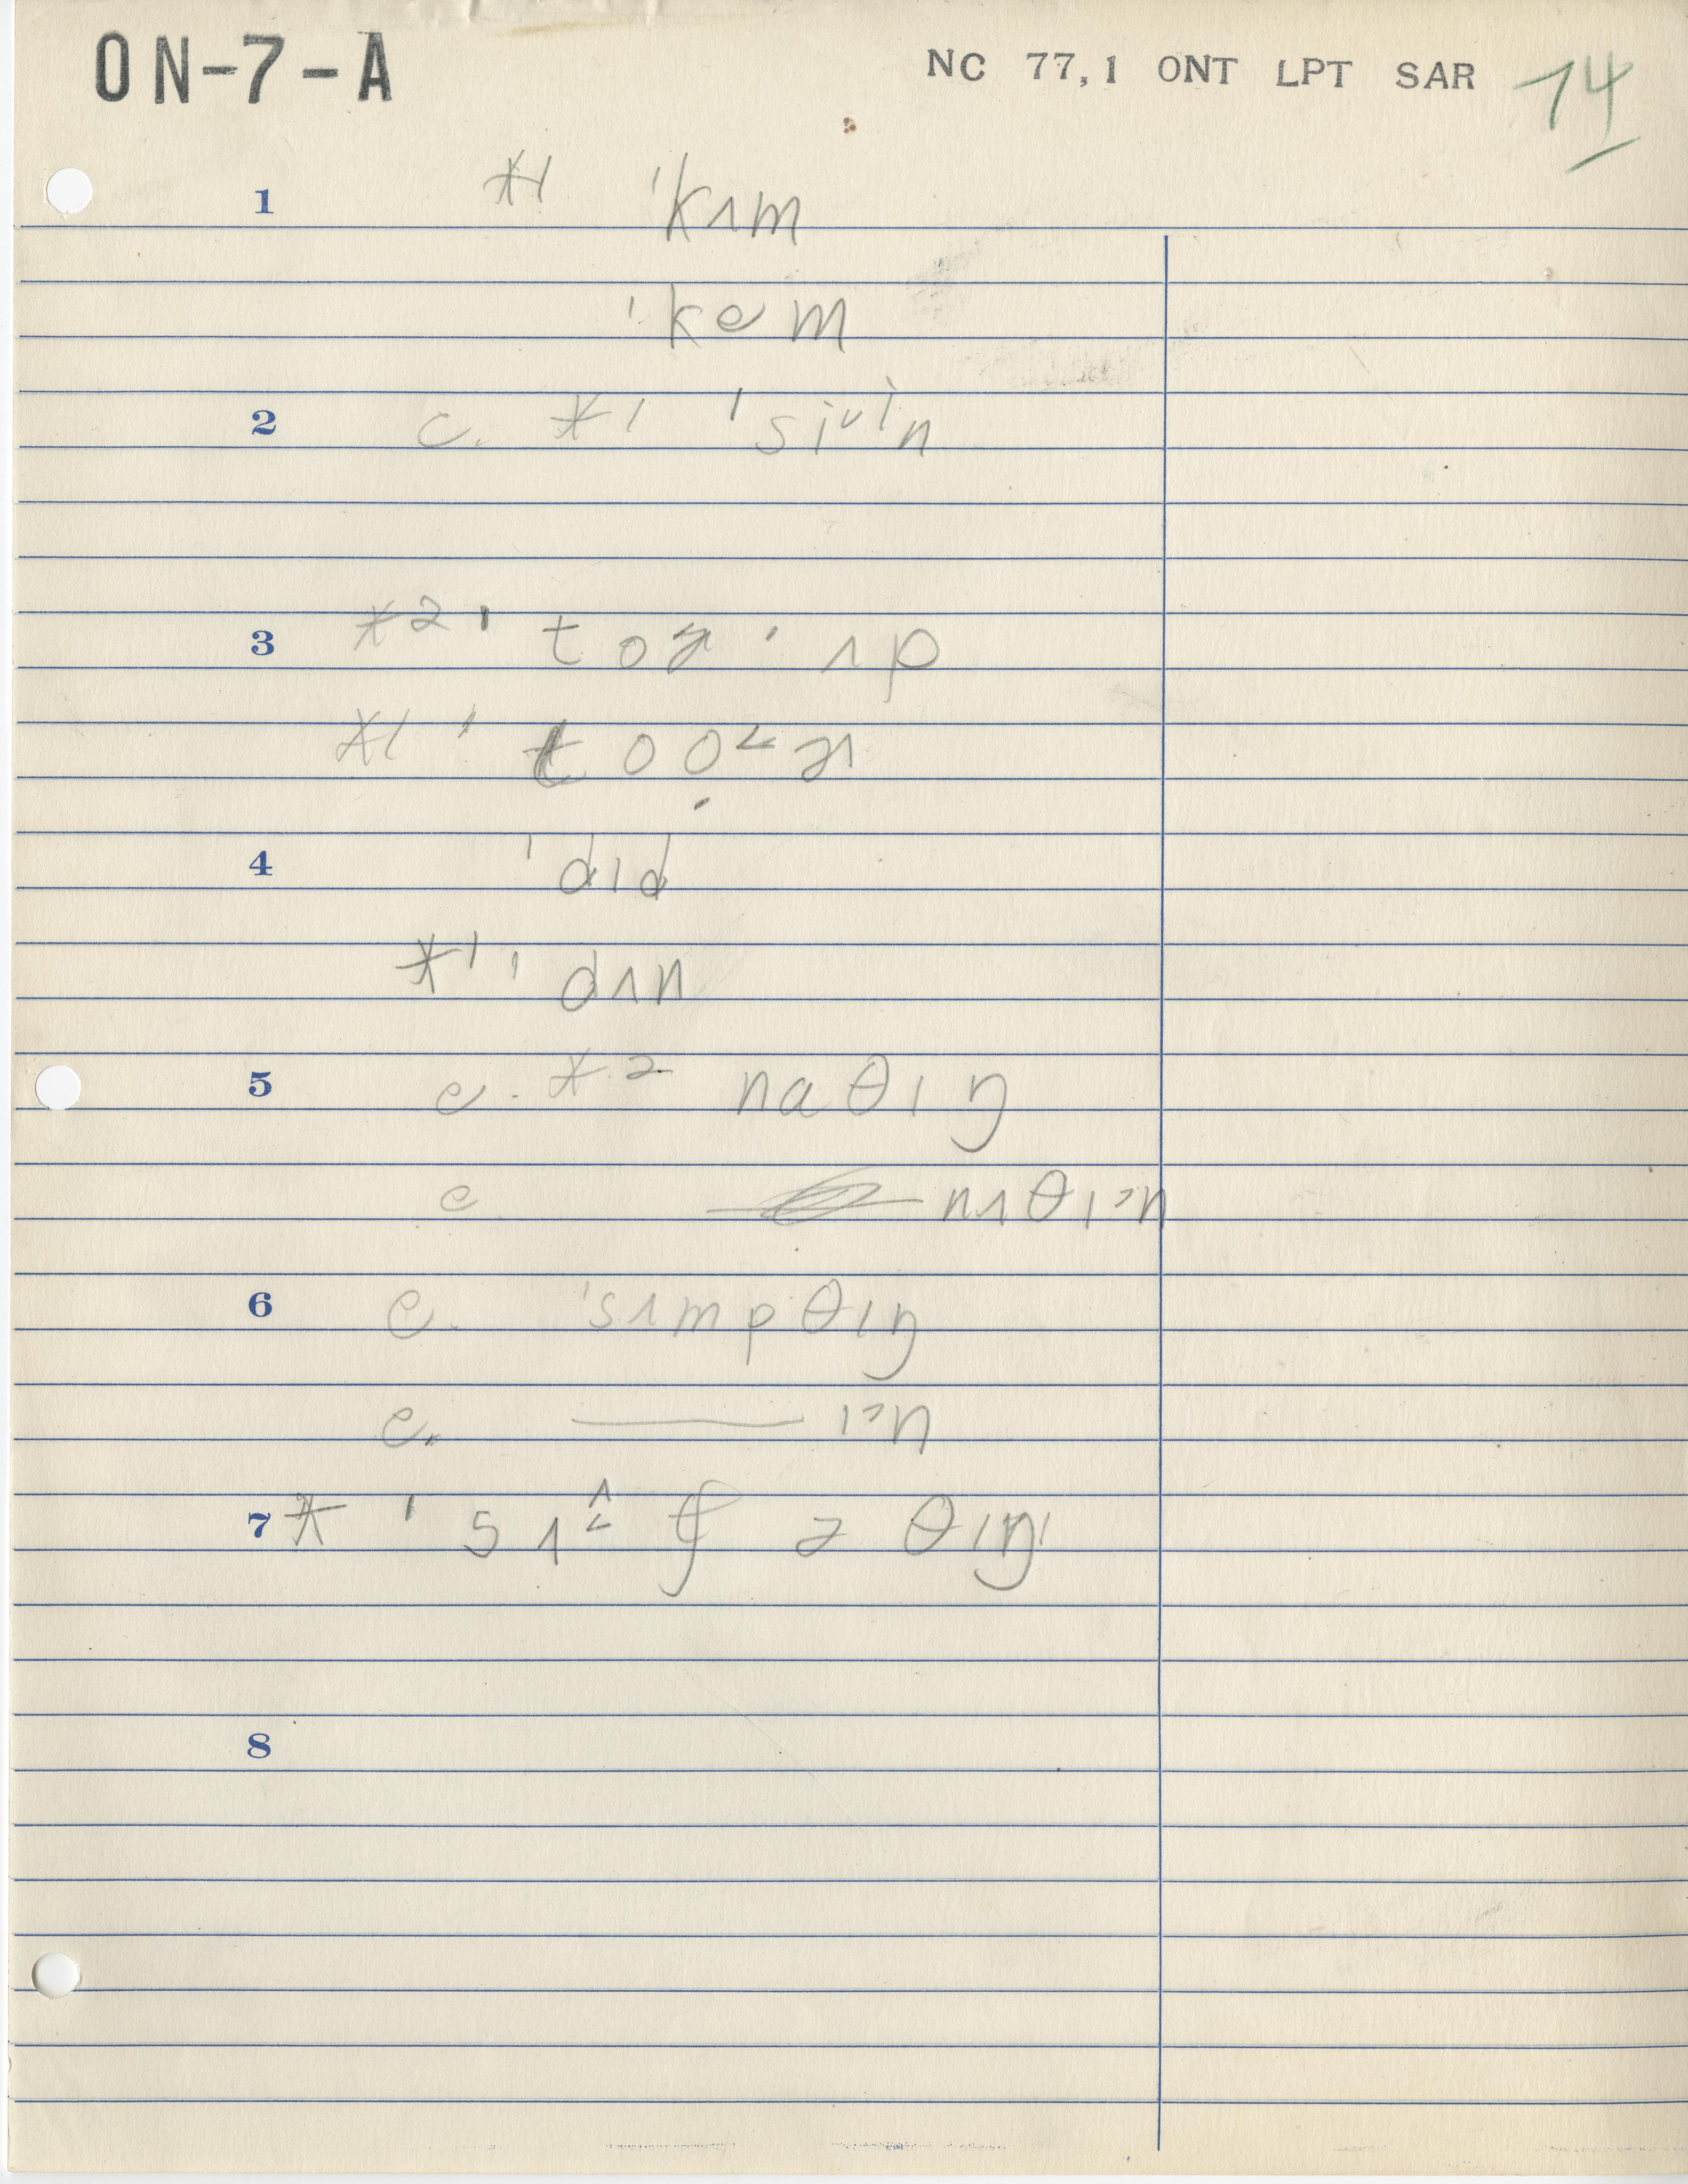 ON-7-A
NC 77,1 ONT LPT SAR 14
1 *1 ˈkʌm
ˈkem
2 c. *1 ˈsivin
3 *2 ˈtoɚ ˈʌp
*1 ˈtoo˂ɚ
4 ˈdɪd
*1 ˈdʌn
5 c. *2 naθɪŋ
c nʌθɪ˃n
6 c. ˈsʌmpθɪŋ
c. — ɪ˃n
7 * ˈsʌ tʃ ə θɪŋ
8